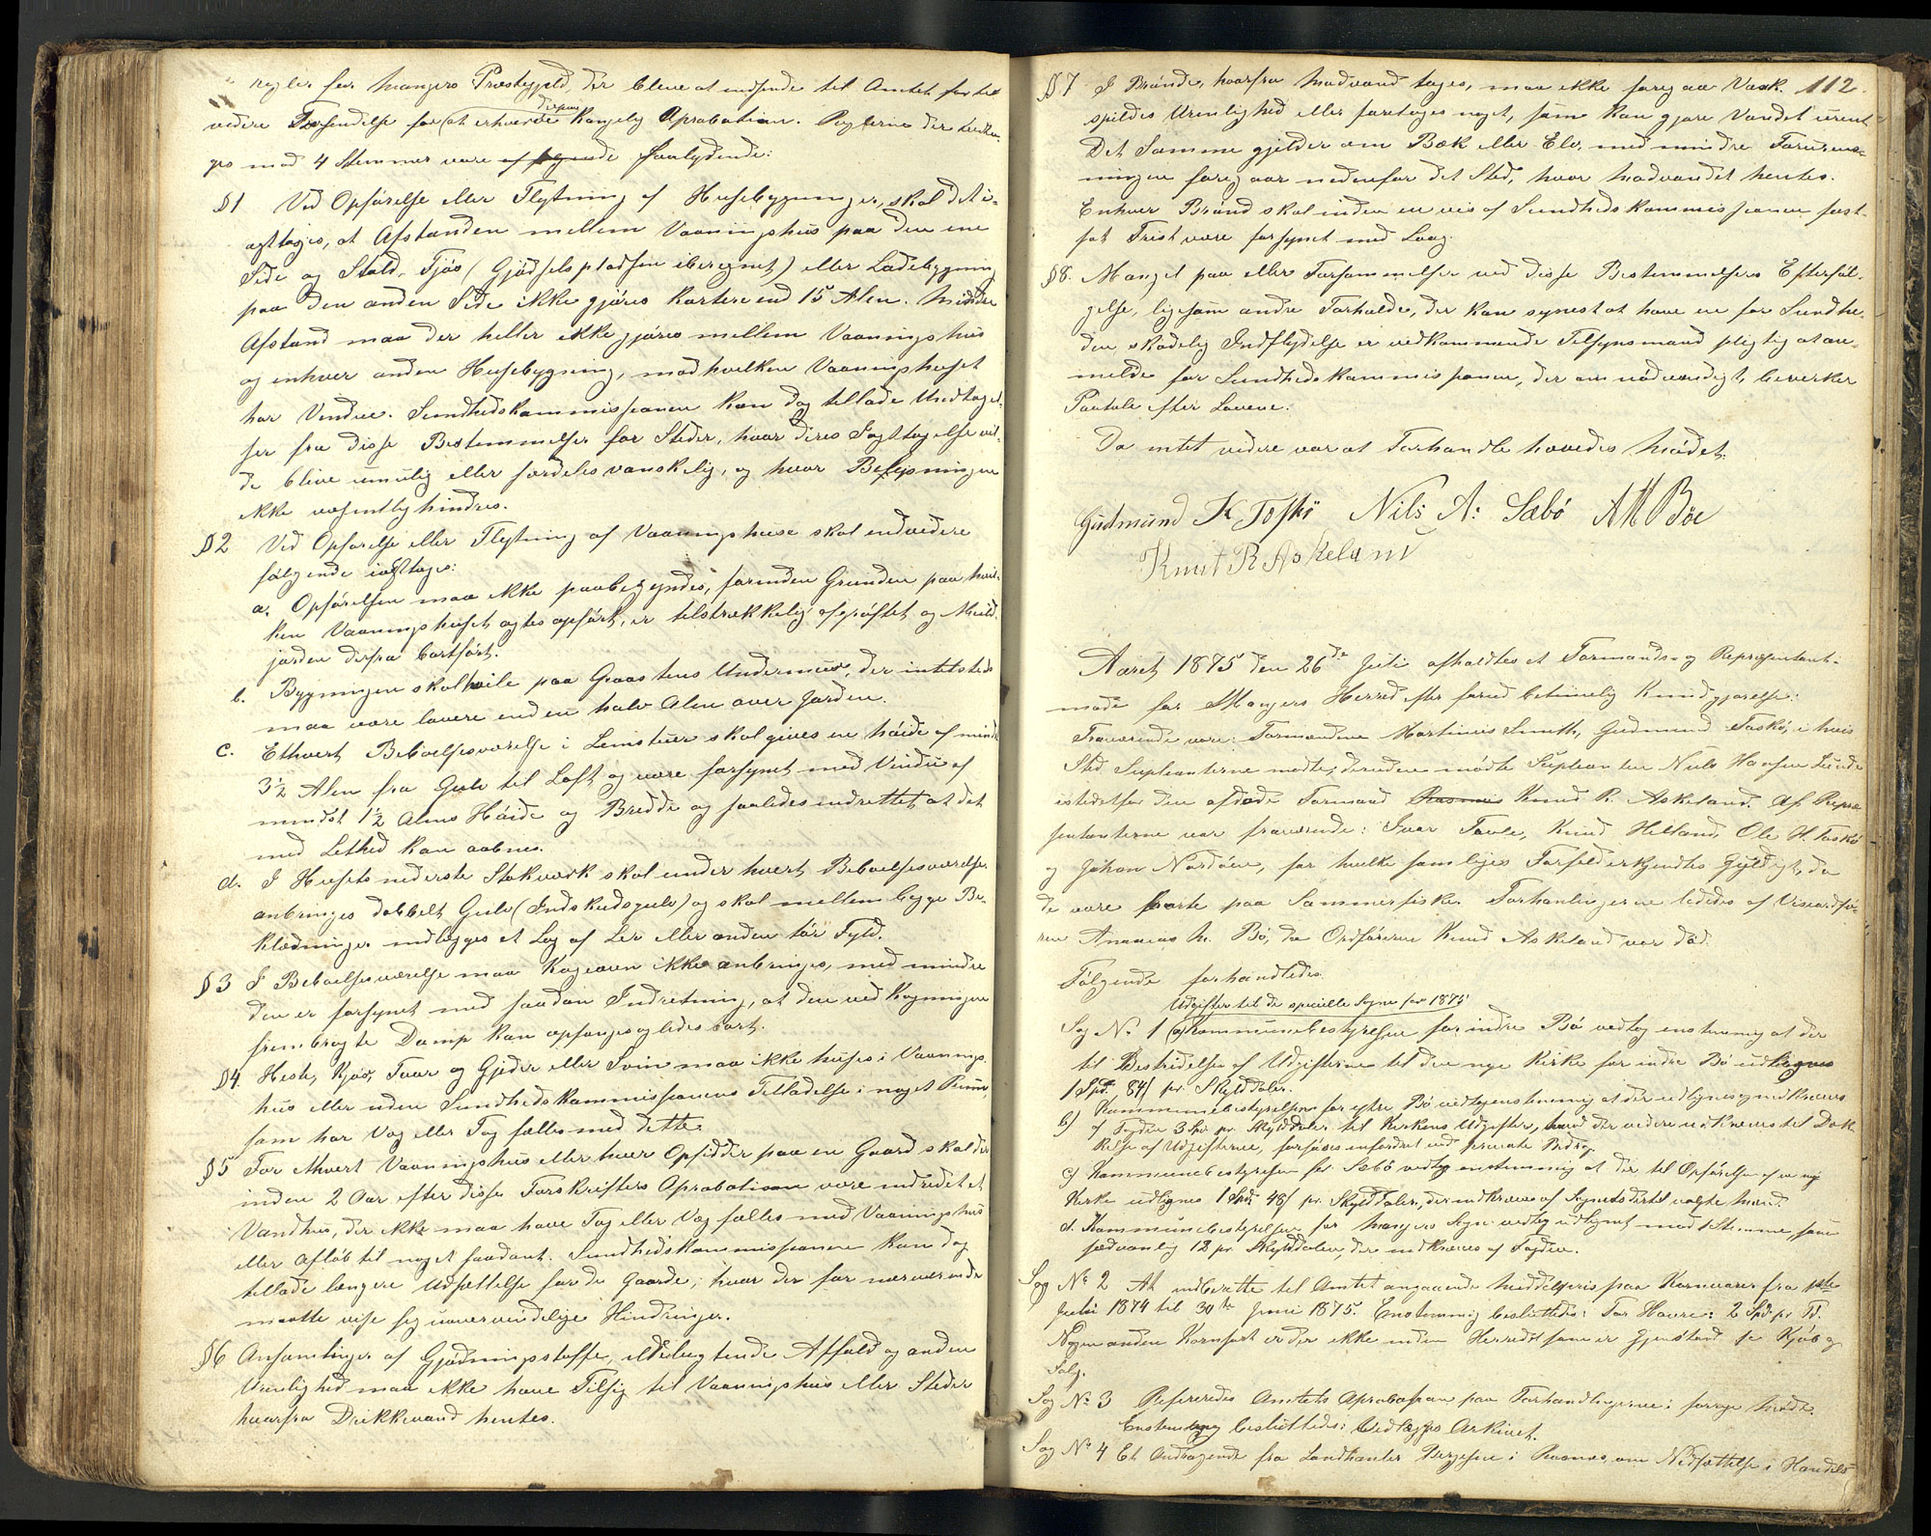 regler for Mangers Præstegjeld, der bleve at indsende til Amtet for det
videre Forsendelse for (at erhverve derpaa Kongelig Aprobation. Reglerne der vedto-
ges med 4 Stemmer vare saalydende:
§1 Ved Opførelse eller Flytning af Husebygninger, skal det i-
agttages, at Afstanden mellem Vaaningshus paa den ene
Side og Stald, Fjøs (Gjødselspladsen iberegnet) eller Ladebygning
paa den anden Side ikke gjøres kortere end 15 Alen. Mindre
Afstand maa der heller ikke gjøres mellem Vaaningshus
og enhver anden Husebygning, mod hvilken Vaaningshuset
har Vinduer. Sundhedskommissionen kan dog tillade Undtagel-
ser fra disse Bestemmelser for Steder, hvor deres Iagttagelse vil-
de blive umulig eller særdeles vanskelig, og hvor Belysningen
ikke væsentlig hindres.
§2 Ved Opførelse eller Flytning af Vaaningshuse skal endvidere
følgende iagttages:
a. Opførelsen maa ikke paabegyndes, forinden Grunden paa hvil-
ken Vaaningshuset agtes opført, er tilstrækkelig afgrøftet og Muld-
jorden derfra bortført.
b. Bygningen skal hvile paa Graastens Undermur, der intetsteds
maa være lavere end en halv Alen over Jorden.
c. Ethvert Beboelsesværelse i skal gives en Høide af mindst
3½ Alen fra Gulv til Loft og være forsynet med Vindu af
mindst 1½ Alens Høide og Bredde og saaledes indrettet at det
med Lethed kan aabnes.
d. I Husets nederste Stokværk skal under hvert Beboelsesværelse
anbringes dobbelt Gulv (Indskudsgulv) og skal mellem begge Be-
klædninger indlægges et Lag af Ler eller anden tør Fyld.
§3 I Beboelsesværelse maa Kogeovn ikke anbringes, med mindre
den er forsynet med saadan Indretning, at den ved Kogningen
frembragte Damp kan opfanges og ledes bort.
§4. Heste, Kjør, Faar og Gjeder eller Sviin maa ikke huses i Vaanings-
hus eller uden Sundhedskommissionens Tilladelse i noget Rum,
som har Væg eller Tag fælles med dette.
§5 For ethvert Vaaningshus eller hver Opsidder paa en Gaard skal der
inden 2 Aar efter disse Forskrifters Aprobation være indredet et
Vandhus, der ikke maa have Tag eller Væg fælles med Vaaningshus
eller Afløb til noget saadant. Sundhedskommissionen kan dog
tillade længere Udsættelse for de Gaarde, hvor der for nærværende
maatte vise sig uovervindelige Hindringer.
§6 Ansamlinger af Gjødningsstoffe, ildelugtende Affald og anden
Urenlighed maa ikke have Tilsig til Vaaningshus eller Steder
hvorfra Drikkevand hentes.
112.
§7 I Brønde, hvorfra Madvand tages, maa ikke foregaa Vask
spildes Urenlighed eller foretages noget, som kan gjøre Vandet urent
Det Samme gjelder om Bæk eller Elv, med mindre Forurens-
ningen foregaar nedenfor det Sted, hvor Madvandet hentes.
Enhver Brønd skal inden en vis af Sundhedskommissionen fast-
sat Frist være forsynet med Laag.
§8. Mangel paa eller Forsømmelser ved disse Bestemmelsers Efterføl-
gelse, ligesom andre Forholde, der kan synes at have en for Sundhe-
den skadelig Indflydelse er vedkommende Tilsynsmand pligtig at an-
melde for Sundhedskommissionen, der om nødvendigt, bevirker
Paatale efter Lovene.
Da intet videre var at Forhandle hævedes Mødet.
Gudmund K Toskø Nils A: Sæbø A M Bøe
Knut R Askeland
Aaret 1875 den 26de Juli afholdtes et Formands- og Repræsentant-
møde for Mangers Herred efter forud betimelig Kundgjørelse:
Fraværende vare: Formændene Martinus Smith, Gudmund Toskø, i hvis
Sted Supleanterne mødte; desuden mødte Supleanten Niels Hansen Lunde
istedetfor den afdøde Formand Knud R. Askeland. Af Repræ-
sentanterne var fraværende: Ivar Tavle, Knud Helland, Ole H. Toskø
og Johan Nordøen, for hvilke samtliges Forfald erkjendtes Gyldigt, da
de vare borte paa Sommerfiske. Forhandlingerne lededes af Viceordfø-
ren Ananias M. Bø, da Ordføreren Knud Askeland var død.
Følgende forhandledes.
Udgifter til de specielle Sogne for 1875
Sag No 1 a) Kommunebestyrelsen for indre Bø vedtog enstemmig at der
til Bestridelse af Udgifterne til den nye Kirke for indre Bø udlignes
1 Spd. 84 s pr. Skylddaler.
b) Kommunebestyrelsen for ytre Bø vedtog enstemmig at der udlignes og indkræves
af Fogden 3 Spd pr. Skylddaler til Kirkens Udgifter, hvad der videre udkræves til Dæk-
kelse af Udgifterne, forsøges erholdt ved private Bidrag.
c) Kommunebestyrelsen for Sæbø vedtog enstemmig at der til Opførelse af en ny
Kirke udlignes 1 Spd. 48 s pr. Skylddaler, der indkræves af Sognets dertil valgte Mænd.
d. Kommunebestyrelsen for Mangers Sogn vedtog udlignet med Stemme, som
sædvanlig 12 pr. Skylddaler, der indkræves af Fogden.
Sag No 2 At indberette til Amtet angaaende Middelpris paa Kornvarer fra 1ste
Juli 1874 til 30te Juni 1875. Enstemmig besluttedes: For Havre: 2 Spd. pr. Td.
Nogen anden Kornsort er der ikke inden Herredet som er Gjenstand for Kjøb og
Salg.
Sag No 3 Refereredes Amtets Aprobation paa Forhandlingerne i forrige Møde.
Enstemmig besluttedes: Vedlægges Arkivet.
Sag No 4 Et Andragende fra Landhandler i Rosnes om Nedsættelse i Handels